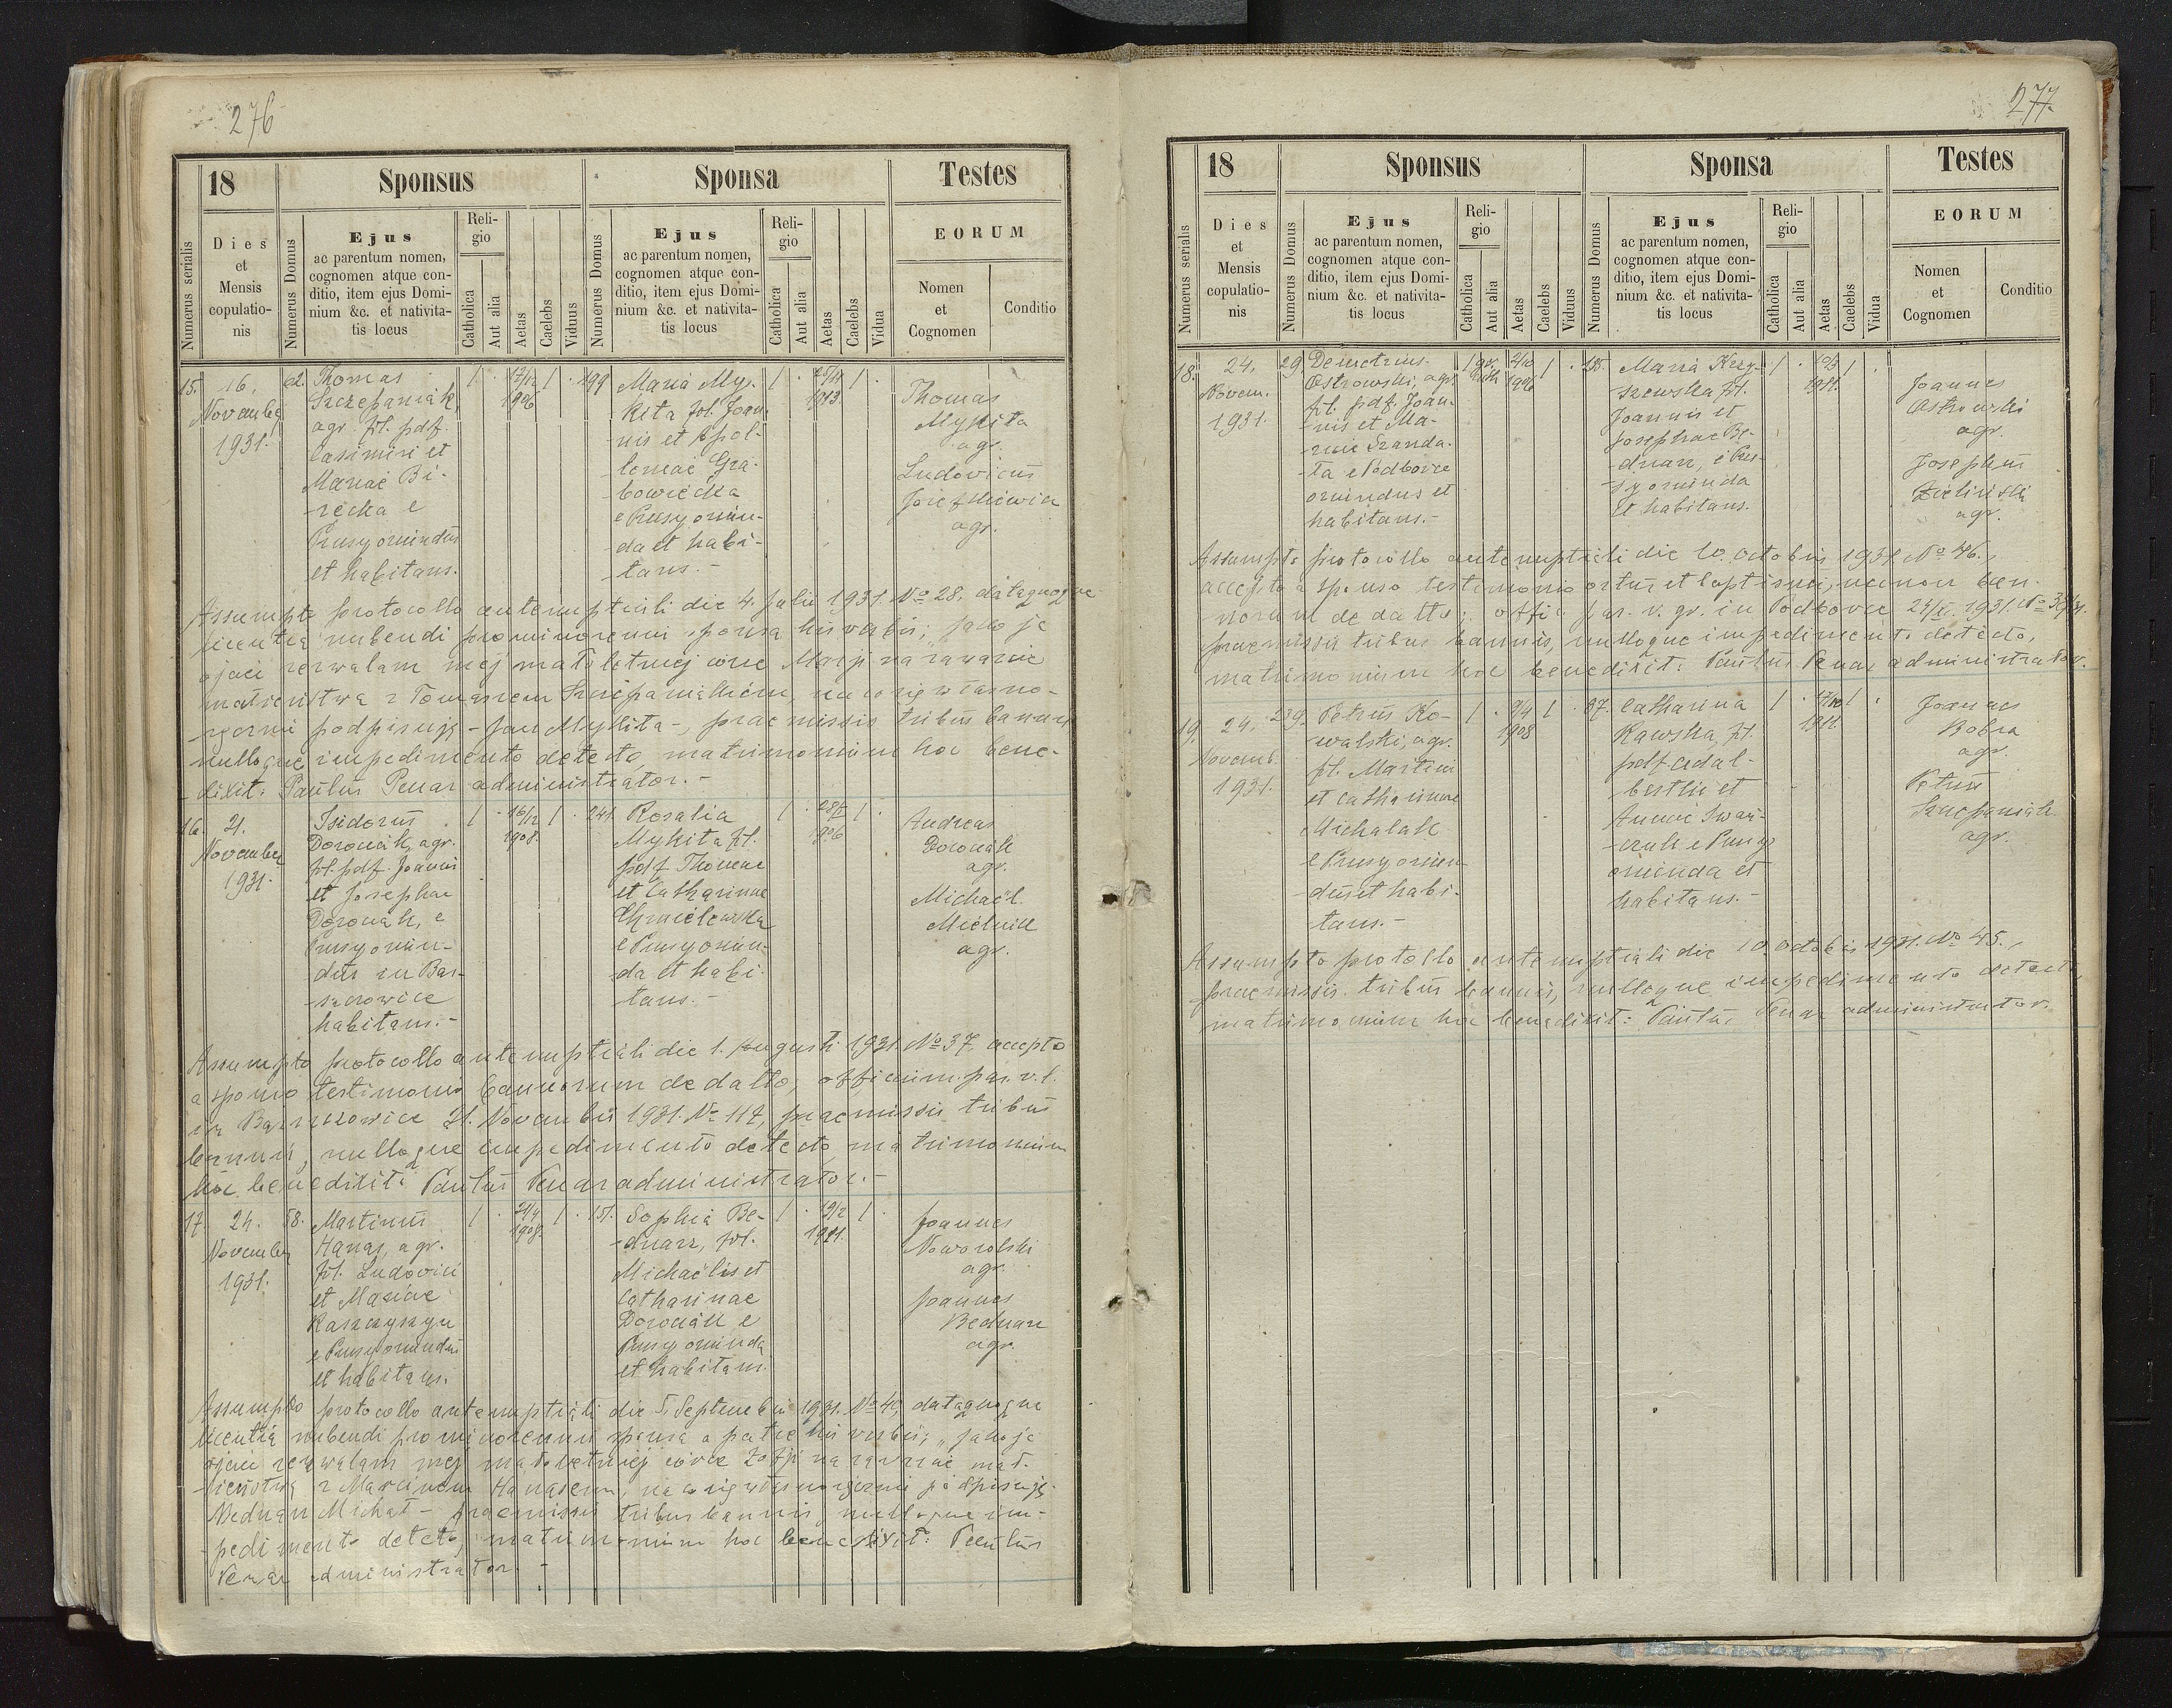 276
18
Sponsus
Sponsa
Testes
Numerus serialis
Dies
et
Mensis
copulatio-
nis
Numerus Domus
Ejus
ac parentum nomen,
cognomen atque con-
ditio, item ejus Domi-
nium &c. et nativita-
tis locus
Reli-
gio
Catholica
Aut alia
Aetas
Caelebs
Viduus
Numerus Domus
Ejus
ac parentum nomen,
cognomen atque con-
ditio, item ejus Domi-
nium &c. et nativita-
tis locus
Reli-
gio
Catholica
Aut alia
Aetas
Caelebs
Vidua
EORUM
Nomen
et
Cognomen
Conditio
15.
16.
November
1931.
62.
Thomas
Szczepaniak,
agr. fil. pdf.
Casimiri et
Mariae Bi-
-recka e
Prusy oriundus
et habitans.
1
17/12
1906
1
199
Maria My-
kita fil. Joan-
-nis et Apol-
loniae Gra-
bowiecka
e Prusy oriun-
-da et habi-
tans.-
1
1913.
1
Thomas
Mykita
agr.
Ludovicus
Józefkiewicz
agr.
Assumpto protocollo antenuptiali die 4. Julii 1931. No 28. dataquoque
licentia nubendi pro minorenni sponsa his verbis; jako ja
ojciec zezwalam mej małoletniej córce Marji na zawarcie
małżeństwa z Tomaszem Szczepaniakiem, na co się własno-
-ręcznie podpisuję - Jan Mykita -, praemissis tribus bannis
nulloque impedimento detecto, matrimonium hoc bene-
-dixit: Paulus Penar administrator.-
16.
21.
November
1931.
Isidorus
Doroniak, agr.
fil. pdf. Joannis
et Josephae
Doroniak, e
Prusy oriun-
dus in Bar-
-szczowice
habitans.-
1
16/12
1908.
1
241.
Rosalia
Mykita fil.
pdf. Thomae
et Catharinae
Chmielewska
e Prusy oriun-
-da et habi-
tans.-
1
1906
1
Andreas
Doroniak
agr.
Michaël
Mielnik
agr.
Assumpto protocollo antenuptiali die 1. Augusti 1931. No 37. accepto
a sponso testimonio bannorum de datto; officium par. r. l.
in Barszczowice 21. Novembris 1931. No 117, praemissis tribus
bannis, nulloque impedimento detecto matrimonium
hoc benedixit: Paulus Penar administrator.-
17.
24.
November
1931.
58.
Martinus
Hanas, agr.
fil. Ludovici
et Mariae
Kaszczyszyn
e Prusy oriundus
et habitans.
1
1908.
1
151.
Sophia Be-
-dnarz, fil.
Michaëlis et
Catharinae
Doroniak e
Prusy oriunda
et habitans.
1
19/2
1911.
1
Joannes
Noworolski
agr.
Joannes
Bednarz
agr.
Assumpto protocollo antenuptiali die 5. Septembris 1931. No 40, dataquoque
licentia nubendi pro minorenni sponsa a patre his verbis; „jako ja
ojciec zezwalam mej małoletniej córce Zofji na zawarcie mał-
-żeństwa z Marcinem Hanasem, na co się własnoręcznie podpisuję.
Bednarz Michał - praemissis tribus bannis, nulloque im-
-pedimento detecto, matrimonium hoc benedixit: Paulus
Penar administrator.-
277.
18
Sponsus
Sponsa
Testes
Numerus serialis
Dies
et
Mensis
copulatio-
nis
Numerus Domus
Ejus
ac parentum nomen,
cognomen atque con-
ditio, item ejus Domi-
nium &c. et nativita-
tis locus
Reli-
gio
Catholica
Aut alia
Aetas
Caelebs
Viduus
Numerus Domus
Ejus
ac parentum nomen,
cognomen atque con-
ditio, item ejus Domi-
nium &c. et nativita-
tis locus
Reli-
gio
Catholica
Aut alia
Aetas
Caelebs
Vidua
EORUM
Nomen
et
Cognomen
Conditio
18.
24.
Novem.
1931.
29.
Demetrius
Ostrowski, agr.
fil. pdf. Joan-
-nis et Ma-
-riae Szanda-
-ła e Podborce
oriundus et
habitans.-
1
1906
1
Maria Krzy-
szewska fil.
Joannis et
Josephae Be-
-dnarz, e Prus-
-sy oriunda
et habitans.
1
1911.
1
Joannes
Ostrowski
agr.
Josephus
Zieliński
agr.
Assumpto protocollo antenuptiali die 10. octobris 1931. No 46.,
accepto a sponso testimonio ortus et baptismi, necnon ban-
-norum de datto; offic. par. r. gr. in Podborce
praemissis tribus bannis, nulloque impedimento detecto,
matrimonium hoc benedixit: Paulus Penar administrator.
19.
24.
Novemb.
1931.
239.
Petrus Ko-
-walski, agr.
fil. Martini
et Catharinae
Michalak
e Prusy oriun-
-dus et habi-
tans.-
1
9/4
1908
1
97.
Catharina
Kawska, fil.
pdf. Adal-
-bertii et
Annae Iwań-
-czuk e Prusy
oriunda et
habitans.-
1
17/10
1911.
1
Joannes
Bobra
agr.
Petrus
Szczepaniak
agr.
Assumpto protollo antenuptiali die 10 octobris 1931. No 45.,
praemissis tribus bannis, nulloque impedimento detecto,
matrimonium hoc benedixit: Paulus Penar administrator.